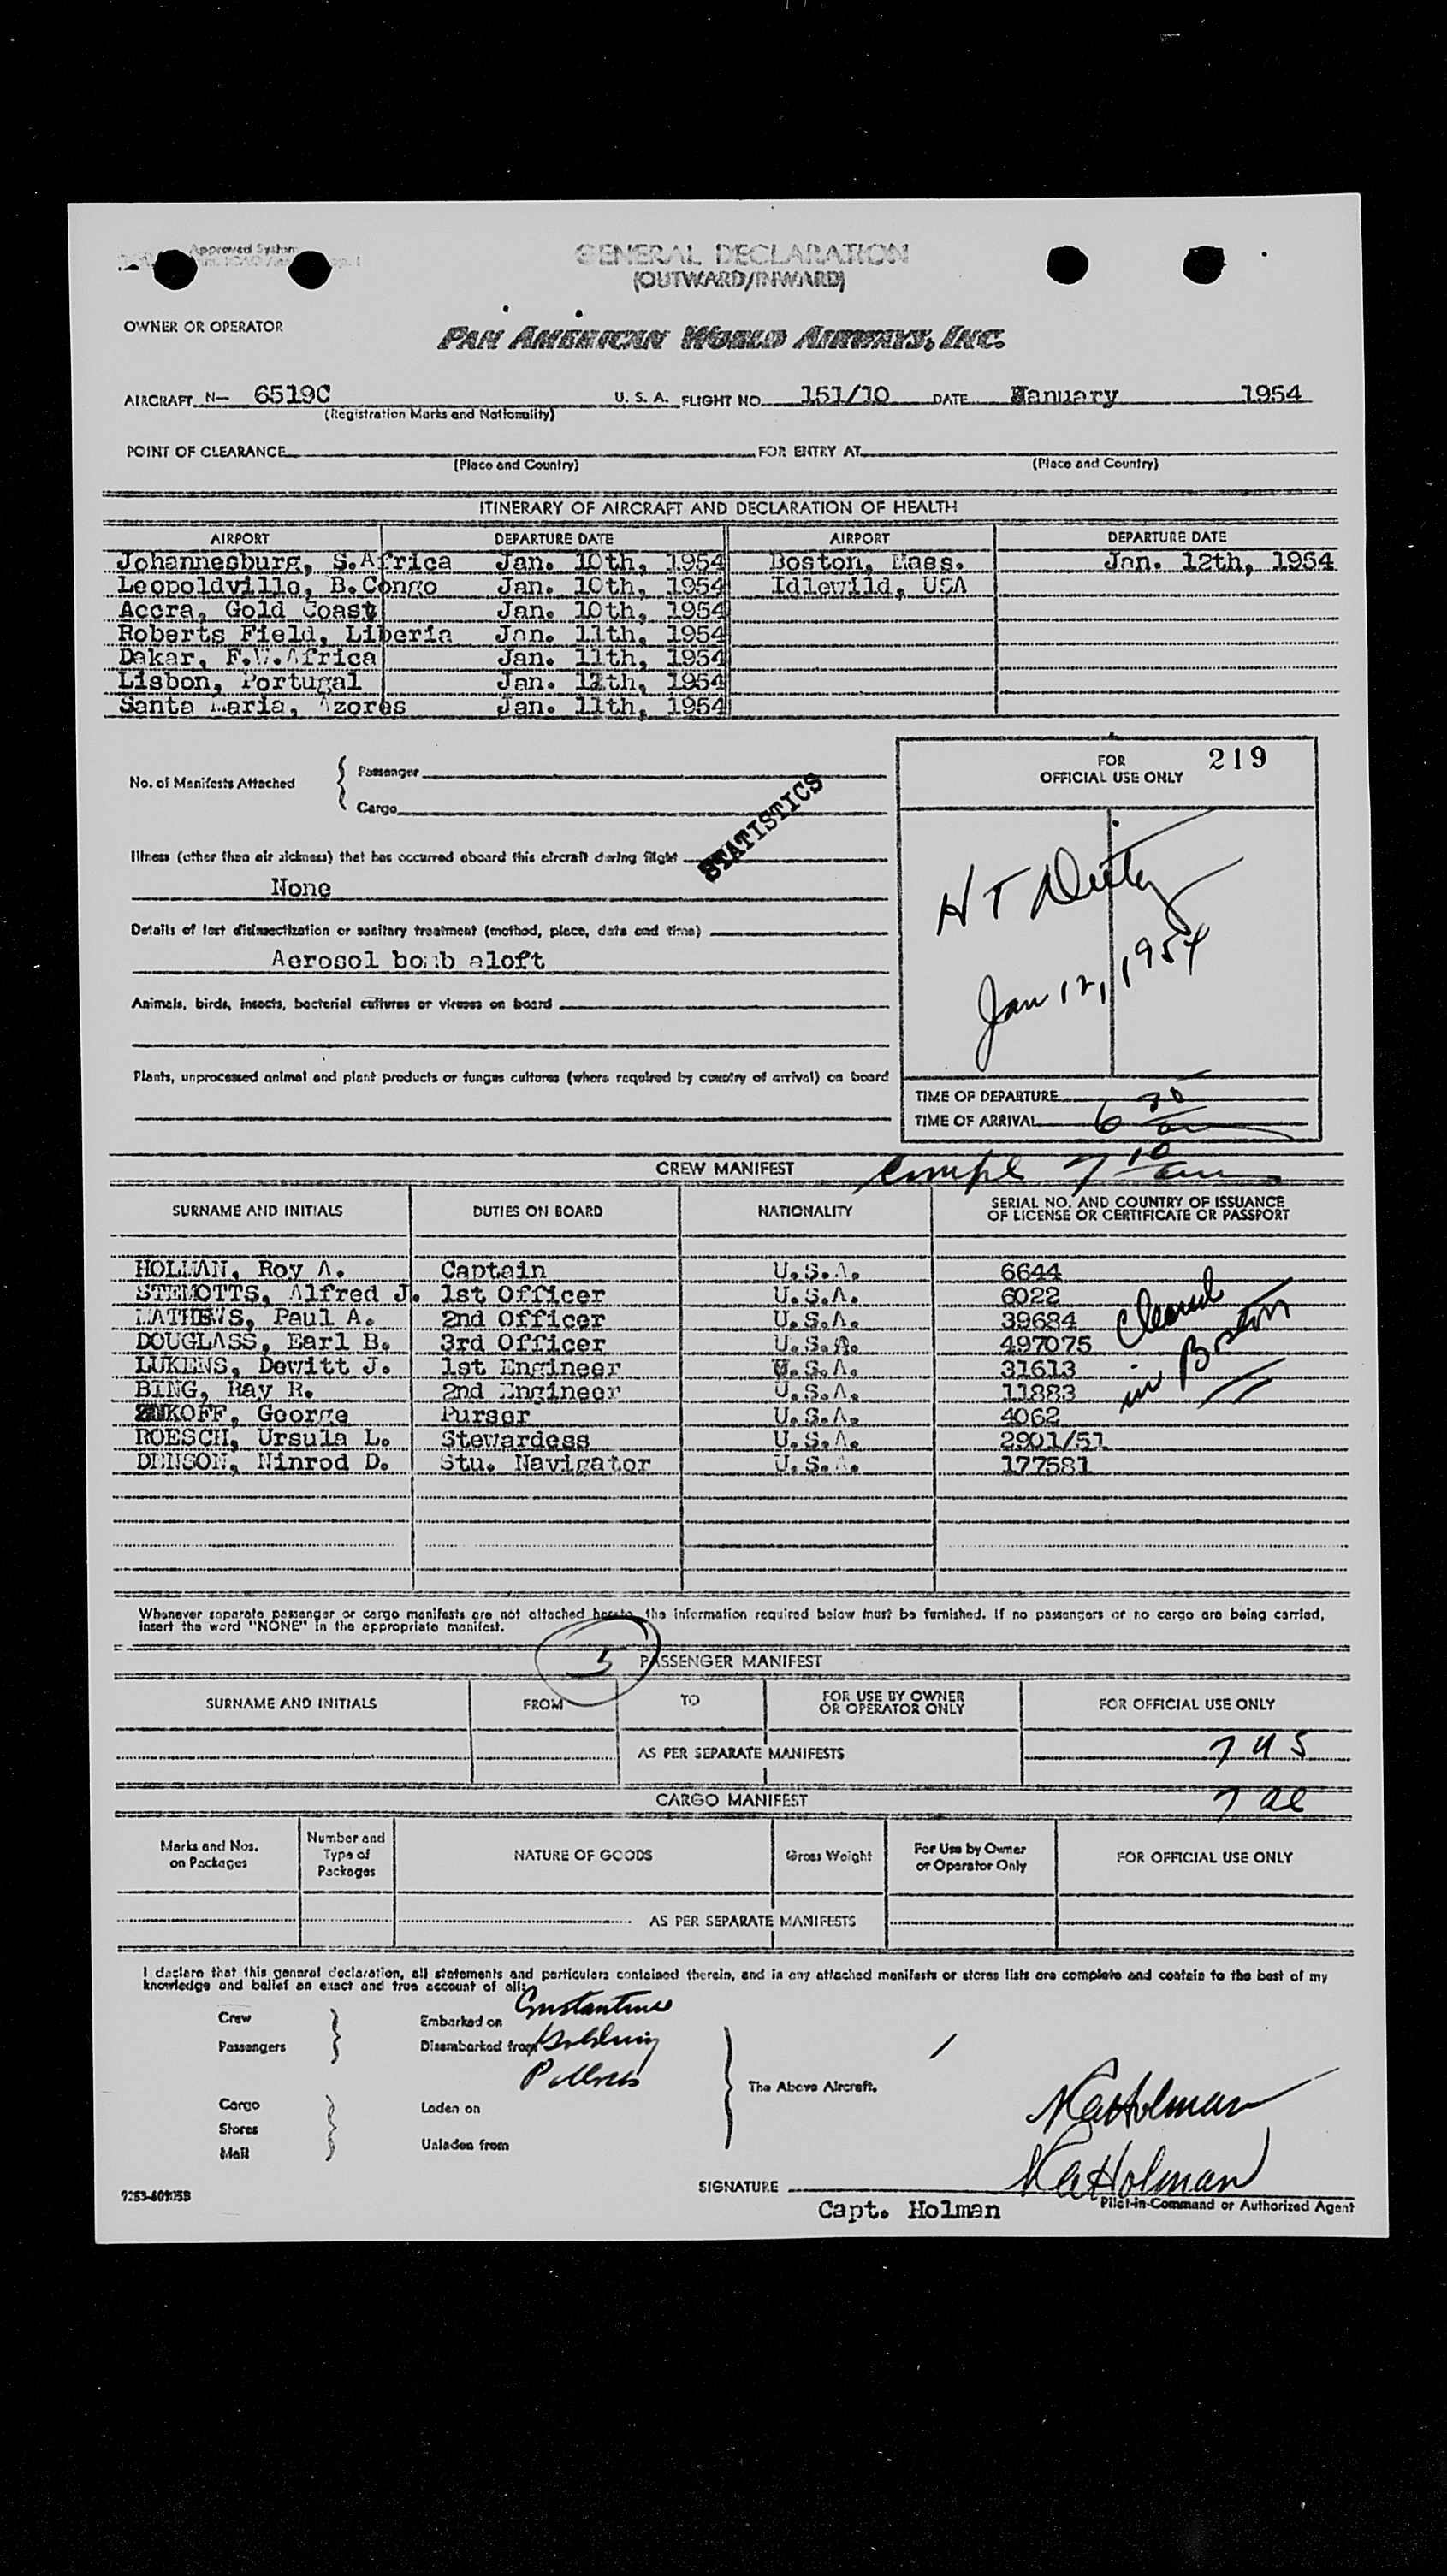 Approved System
GENERAL DECLARATION
(OUTWARD/INWARD)
OWNER OR OPERATOR
PAN AMERICAN WORLD AIRWAYS, INC.
AIRCRAFT N- 6519C U. S. A. FLIGHT NO. 151/10 DATE January 1954
(Registration Marks and Nationality)
POINT OF CLEARANCE FOR ENTRY AT
(Place and Country) (Place and Country)
ITINERARY OF AIRCRAFT AND DECLARATION OF HEALTH
AIRPORT DEPARTURE DATE AIRPORT DEPARTURE DATE
Johannesburg, S.Africa Jan. 10th, 1954 Boston, Mass. Jan. 12th, 1954
Leopoldville, B.Congo Jan. 10th, 1954 Idlewild, USA
Accra, Gold Coast Jan. 10th, 1954
Roberts Field, Liberia Jan. 11th, 1954
Dakar, F.W.Africa Jan. 11th, 1954
Lisbon, Portugal Jan. 1th, 1954
Santa Maria, Azores Jan. 11th, 1954
FOR 219
OFFICIAL USE ONLY
No. of Manifests Attached
Passenger
Cargo
STATISTICS
Illness (other than air sickness) that has occurred aboard this aircraft during flight
None
Details of last disinsectization or sanitary treatment (method, place, date and time)
Aerosol bomb aloft
Animals, birds, insects, bacterial cultures or viruses on board
Plants, unprocessed animal and plant products or fungus cultures (where required by country of arrival) on board
H T
Jan 12, 1954
TIME OF DEPARTURE
TIME OF ARRIVAL 6 30 am
CREW MANIFEST compl 7 10 am
SURNAME AND INITIALS DUTIES ON BOARD NATIONALITY SERIAL NO. AND COUNTRY OF ISSUANCE
OF LICENSE OR CERTIFICATE OR PASSPORT
HOLMAN, Roy A. Captain U.S.A. 6644
STEMOTTS, Alfred J. 1st Officer U.S.A. 6022
MATHEWS, Paul A. 2nd Officer U.S.A. 39684
DOUGLASS, Earl B. 3rd Officer U.S.A. 497075
LUKENS, Dewitt J. 1st Engineer U.S.A. 31613
BING, Ray R. 2nd Engineer U.S.A. 11883
ZUKOFF, George Purser U.S.A. 4062
ROESCH, Ursula L. Stewardess U.S.A. 2901/51
DENSON, Ninrod D. Stu. Navigator U.S.A. 177581
Cleared
in Boston
Whenever separate passenger or cargo manifests are not attached hereto, the information required below must be furnished. If no passengers or no cargo are being carried,
insert the word "NONE" in the appropriate manifest.
5 PASSENGER MANIFEST
SURNAME AND INITIALS FROM TO FOR USE BY OWNER
OR OPERATOR ONLY FOR OFFICIAL USE ONLY
AS PER SEPARATE MANIFESTS 7 US
CARGO MANIFEST 7 al
Marks and Nos.
on Packages
Number and
Type of
Packages
NATURE OF GOODS Gross Weight For Use by Owner
or Operator Only FOR OFFICIAL USE ONLY
AS PER SEPARATE MANIFESTS
I declare that this general declaration, all statements and particulars contained therein, and in any attached manifests or stores lists are complete and contain to the best of my
knowledge and belief an exact and true account of all:
Crew Embarked on Constantine
Passengers Disembarked from
The Above Aircraft.
Cargo Laden on
Stores
Mail Unladen from
RaHolman
RaHolman
SIGNATURE
Capt. Holman Pilot-in-Command or Authorized Agent